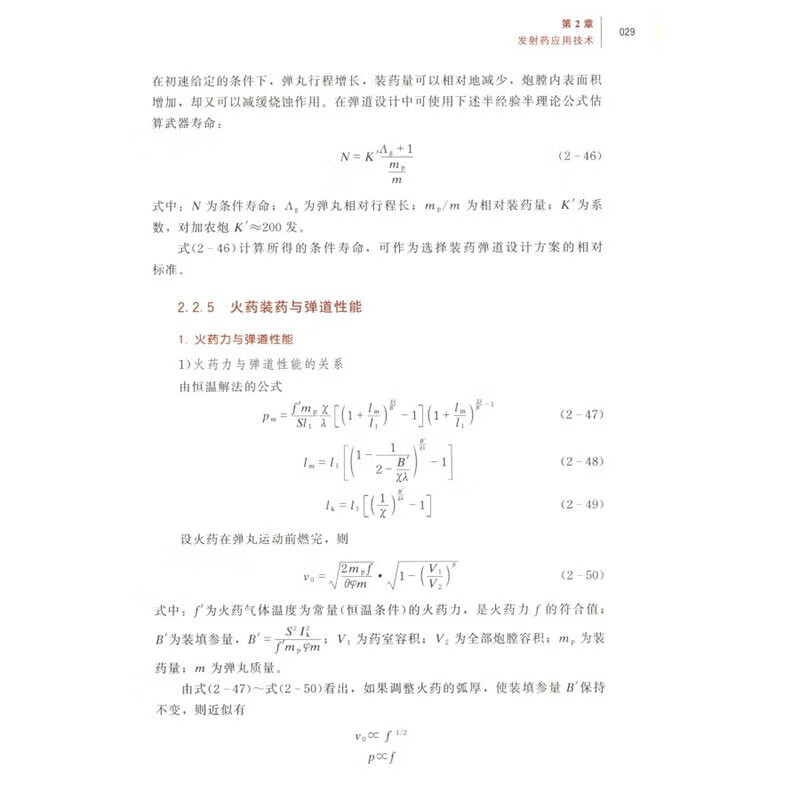 第2章
发射药应用技术
029
在初速给定的条件下，弹丸行程增长，装药量可以相对地减少，炮膛内表面积
增加，却又可以减缓烧蚀作用。在弹道设计中可使用下述半经验半理论公式估
算武器寿命：
N = K′ (Λg + 1) / (mp / m) (2-46)
式中：N 为条件寿命；Λg 为弹丸相对行程长；mp/m 为相对装药量；K′为系
数，对加农炮 K′≈200 发。
式(2-46)计算所得的条件寿命，可作为选择装药弹道设计方案的相对
标准。
2.2.5 火药装药与弹道性能
1. 火药力与弹道性能
1)火药力与弹道性能的关系
由恒温解法的公式
pm = (f′mp / Sl1) (χ / λ) [(1 + lm / l1) − 1] (1 + lm / l1) (2-47)
lm = l1 [(1 − 1 / (2 − B′ / χλ)) − 1] (2-48)
lk = l1 [(1 / χ) − 1] (2-49)
设火药在弹丸运动前燃完，则
v0 = √(2mp f / θφm) · √(1 − (V1 / V2)^θ) (2-50)
式中：f′为火药气体温度为常量(恒温条件)的火药力，是火药力 f 的符合值；
B′为装填参量，B′ = S² Ik² / f′mpφm；V1 为药室容积；V2 为全部炮膛容积；mp 为装
药量；m 为弹丸质量。
由式(2-47)～式(2-50)看出，如果调整火药的弧厚，使装填参量 B′保持
不变，则近似有
v0∝ f 1/2
p∝f